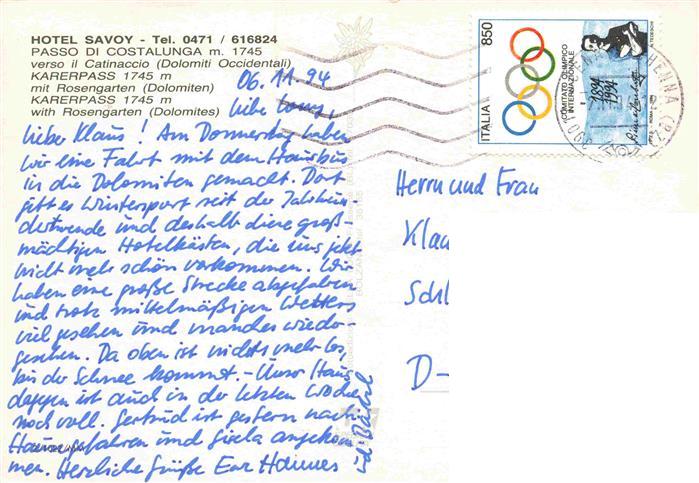 HOTEL SAVOY - Tel. 0471 / 616824
PASSO DI COSTALUNGA m. 1745
verso il Catinaccio (Dolomiti Occidentali)
KARERPASS 1745 m
mit Rosengarten (Dolomiten)
KARERPASS 1745 m
with Rosengarten (Dolomites)
06.11.94
Liebe
lieber Klaus! Am Donnerstag haben
wir eine Fahrt mit dem Hausbus
in die Dolomiten gemacht. Dort
gibt es Wintersport seit der Jahrhun-
dertwende und deshalb diese groß-
mächtigen Hotelkästen, die uns jetzt
nicht mehr schön vorkommen. Wir
haben eine große Strecke abgefahren
und trotz mittelmäßigen Wetters
viel gesehen und manches wieder-
gesehen. Da oben ist nichts mehr los,
bis der Schnee kommt. - Unser Haus
dagegen ist auch in der letzten Woche
noch voll. Gertrud ist gestern nach
Hause gefahren und Gisela angekom
men. Herzliche Grüße Eur Hannes
und Bärbel
ITALIA
850
COMITATO OLIMPICO
INTERNAZIONALE
1894
1994
TEDESCHI
Herrn und Frau
Klau
Schl
D-